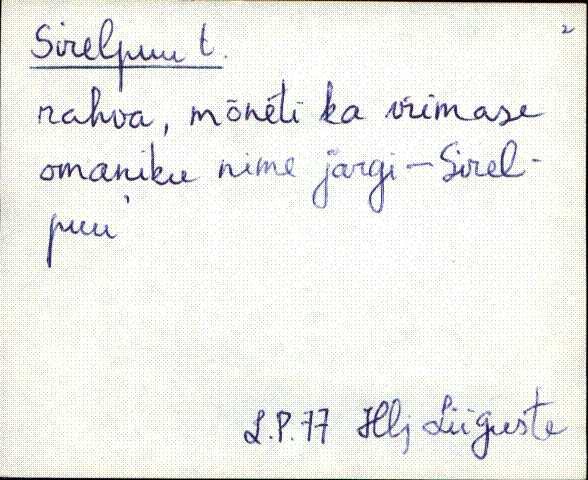 Sirelpuu t. 2
rahva, mõneti ka viimase
omaniku nime järgi – Sirel-
puu
L.P. 77 Hlj Liiguste